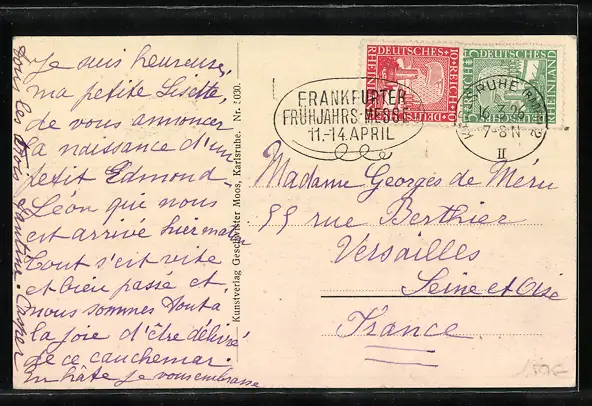 Je suis heureuse,
ma petite Lisette,
de vous annoncer
la naissance d'un
petit Edmond
Léon que nous
est arrivé hier matin
Tout s'est vite
et bien passé et
nous sommes tout a
la joie d'être délivré
de ce cauchemar.
En hâte je vous embrasse
tous les trois
Kunstverlag Geschwister Moos, Karlsruhe. Nr.
FRANKFURTER
FRÜHJAHRS-MESSE
11.-14. APRIL
DEUTSCHES REICH
RHEINLAND
10
DEUTSCHES REICH
RHEINLAND
5
KARLSRUHE
7-8 N
II
Madame Georges de Méru
55 rue Berthier
Versailles
Seine et Oise
France